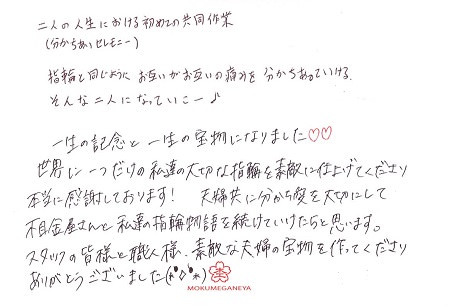 二人の人生における初めての共同作業
(分かちあいセレモニー)
指輪と同じように お互いがお互いの痛みを 分かちあっていける
そんな二人になっていこー♪
一生の記念と一生の宝物になりました♡♡
世界に一つだけの私達の大切な指輪を素敵に仕上げてくださり
本当に感謝しております! 夫婦共に分かち愛を大切にして
杢目金屋さんと私達の指輪物語を続けていけたらと思います。
スタッフの皆様と職人様、素敵な夫婦の宝物を作ってくださり
ありがとうございました(*^◇^*)
MOKUMEGANEYA